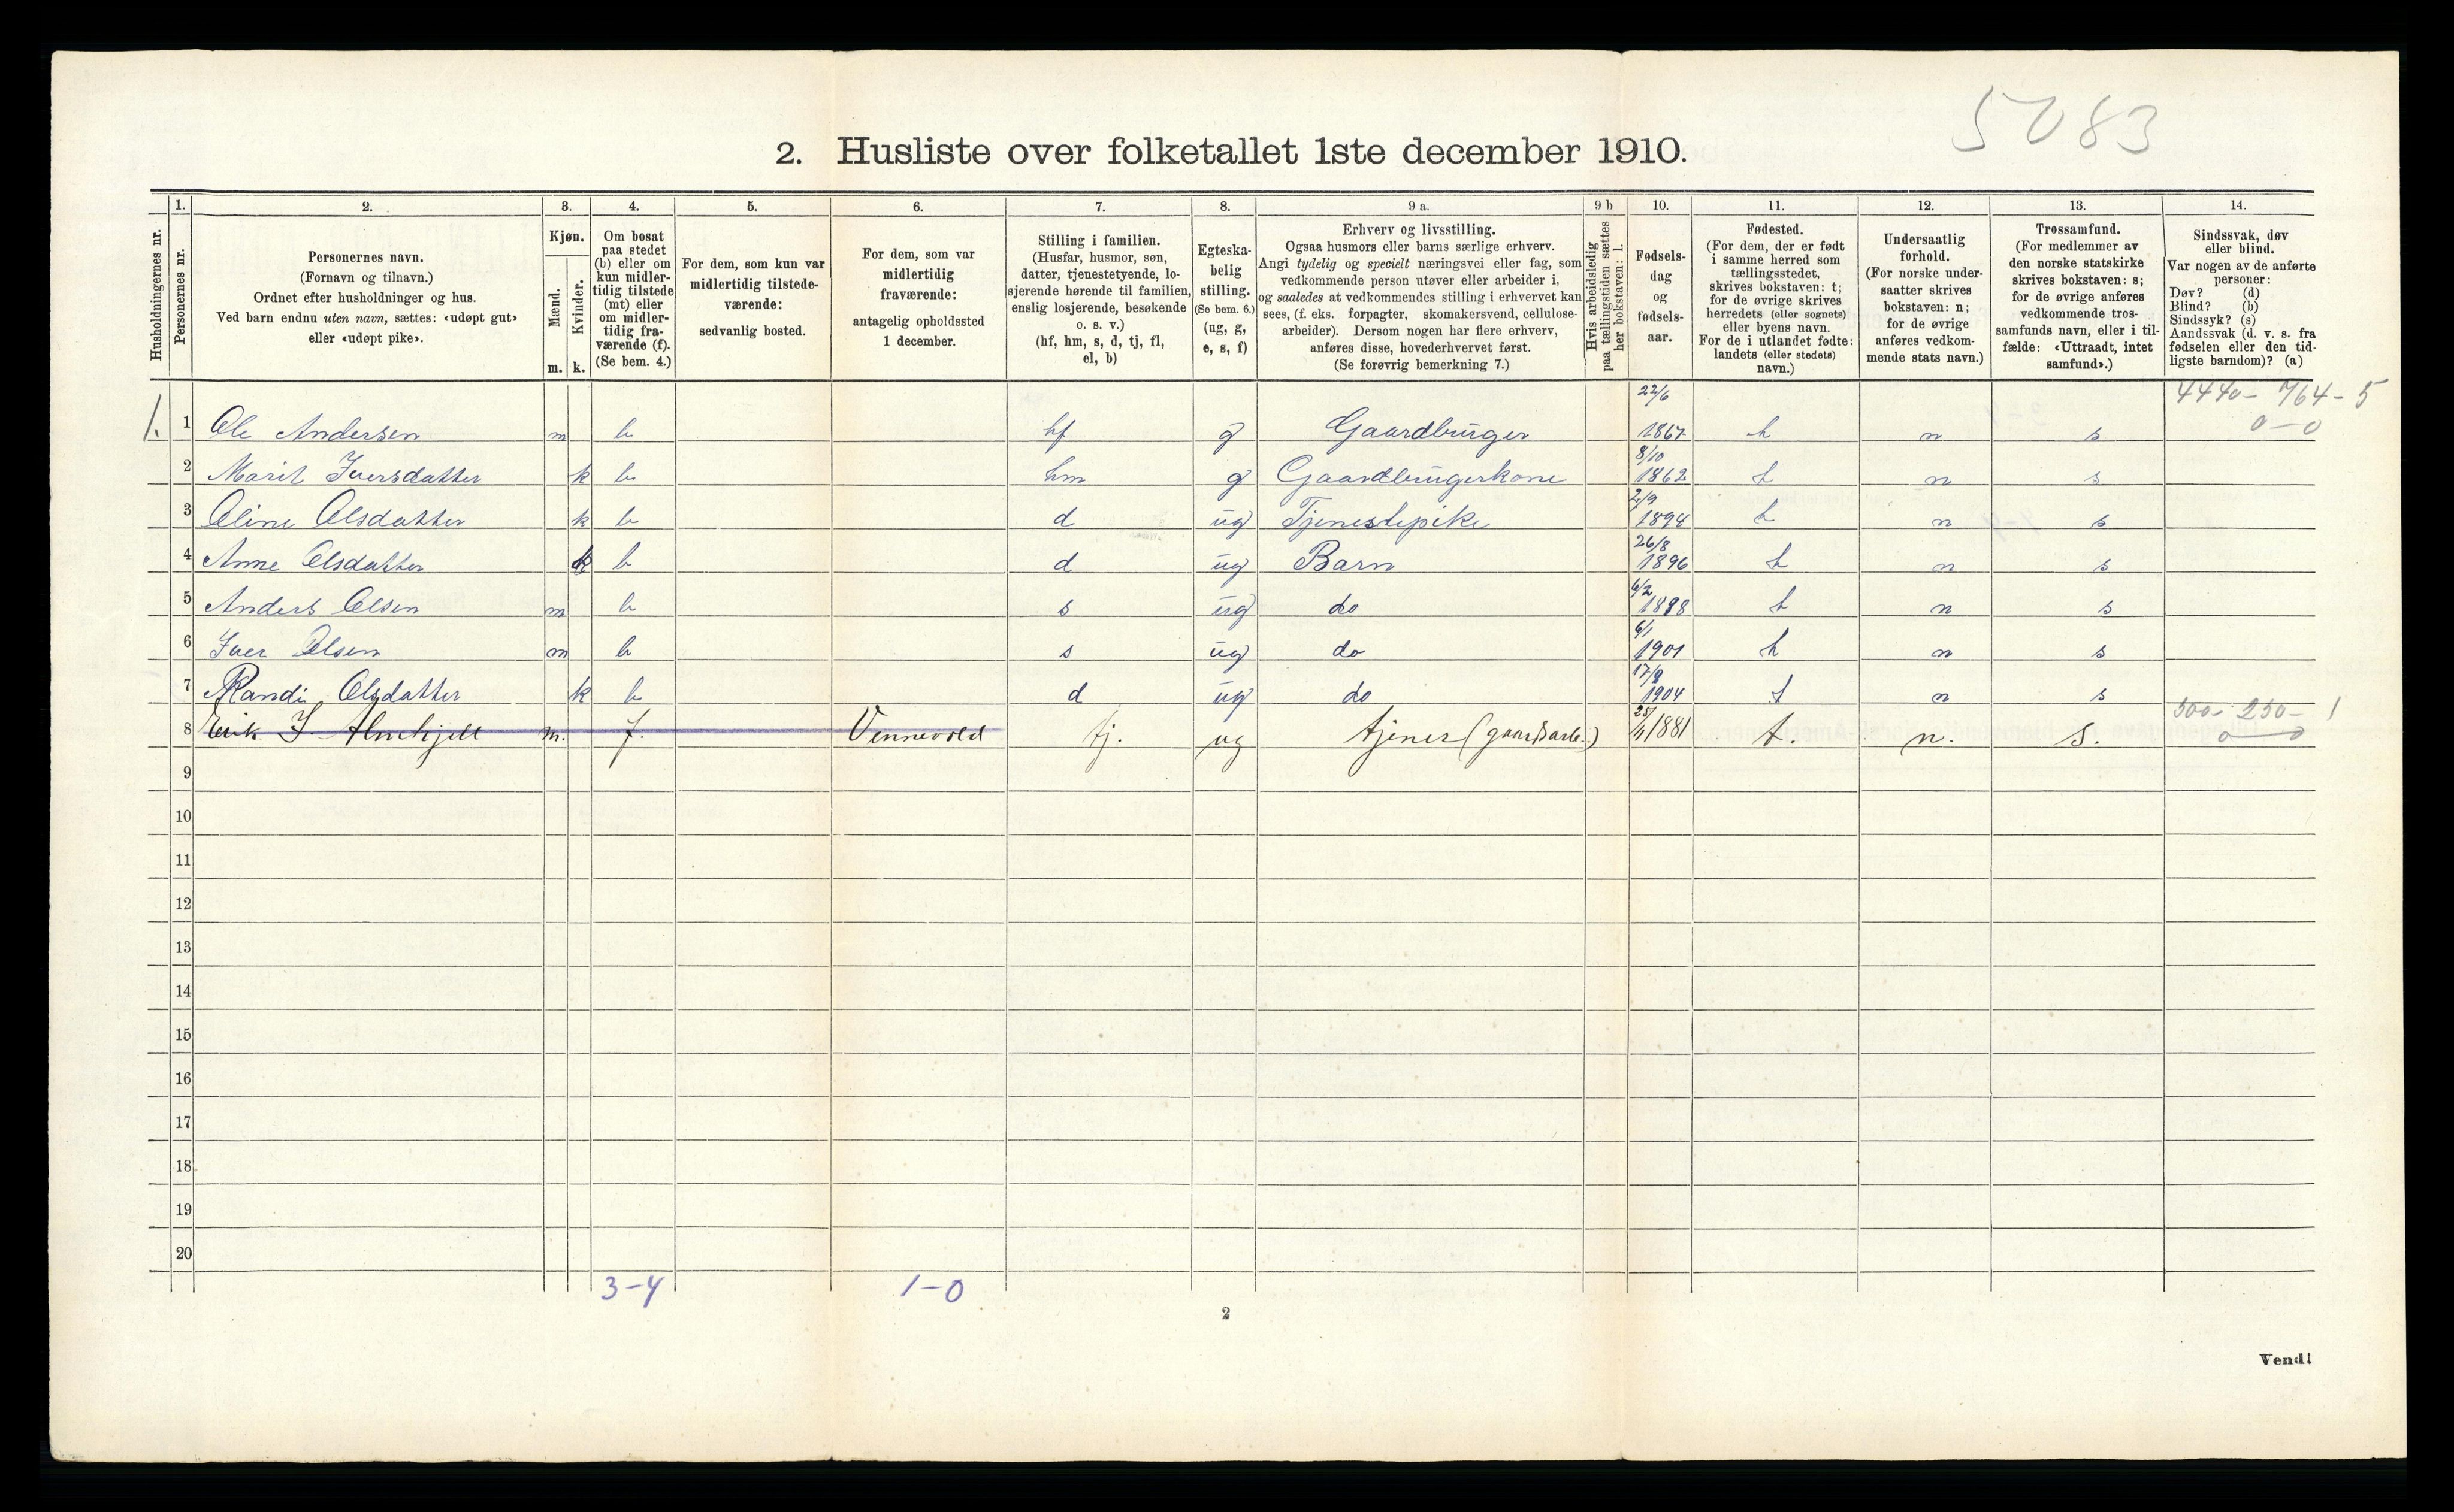 5083
2. Husliste over folketallet 1ste december 1910.
Husholdningernes nr.
1.
Personernes nr.
2.
Personernes navn.
(Fornavn og tilnavn.)
Ordnet efter husholdninger og hus.
Ved barn endnu uten navn, sættes: «udøpt gut»
eller «udøpt pike».
3.
Kjøn.
Mænd.
Kvinder.
m. k.
4.
Om bosat
paa stedet
(b) eller om
kun midler-
tidig tilstede
(mt) eller
om midler-
tidig fra-
værende (f).
(Se bem. 4.)
5.
For dem, som kun var
midlertidig tilstede-
værende:
sedvanlig bosted.
6.
For dem, som var
midlertidig
fraværende:
antagelig opholdssted
1 december.
7.
Stilling i familien.
(Husfar, husmor, søn,
datter, tjenestetyende, lo-
sjerende hørende til familien,
enslig losjerende, besøkende
o. s. v.)
(hf, hm, s, d, tj, fl,
el, b)
8.
Egteska-
belig
stilling.
(Se bem. 6.)
(ug, g,
e, s, f)
9 a.
Erhverv og livsstilling.
Ogsaa husmors eller barns særlige erhverv.
Angi tydelig og specielt næringsvei eller fag, som
vedkommende person utøver eller arbeider i,
og saaledes at vedkommendes stilling i erhvervet kan
sees, (f. eks. forpagter, skomakersvend, cellulose-
arbeider). Dersom nogen har flere erhverv,
anføres disse, hovederhvervet først.
(Se forøvrig bemerkning 7.)
9 b
Hvis arbeidsledig
paa tællingstiden sættes
her bokstaven: l.
10.
Fødsels-
dag
og
fødsels-
aar.
11.
Fødested.
(For dem, der er født
i samme herred som
tællingsstedet,
skrives bokstaven: t;
for de øvrige skrives
herredets (eller sognets)
eller byens navn.
For de i utlandet fødte:
landets (eller stedets)
navn.)
12.
Undersaatlig
forhold.
(For norske under-
saatter skrives
bokstaven: n;
for de øvrige
anføres vedkom-
mende stats navn.)
13.
Trossamfund.
(For medlemmer av
den norske statskirke
skrives bokstaven: s;
for de øvrige anføres
vedkommende tros-
samfunds navn, eller i til-
fælde: «Uttraadt, intet
samfund».)
14.
Sindssvak, døv
eller blind.
Var nogen av de anførte
personer:
Døv? (d)
Blind? (b)
Sindssyk? (s)
Aandssvak (d. v. s. fra
fødselen eller den tid-
ligste barndom)? (a)
4440 - 764 - 5
0 - 0
1. 1 Ole Andersen m b hf g Gaardbruger 22/6 1867 t n s
2 Marit Iversdatter k b hm g Gaardbrugerkone 8/10 1862 t n s
3 Oline Olsdatter k b d ug Tjenestepike 2/9 1894 t n s
4 Anne Olsdatter k b d ug Barn 26/8 1896 t n s
5 Anders Olsen m b s ug do 6/2 1898 t n s
6 Iver Olsen m b s ug do 6/1 1901 t n s
7 Randi Olsdatter k b d ug do 17/8 1904 t n s
500 - 250 - 1
0 - 0
8 Erik J. Almehjell m. f. Vennevold tj. ug tjener (gaardsarb.) 1881 t. n. s.
9
10
11
12
13
14
15
16
17
18
19
20
3-4 1-0
2
Vend!